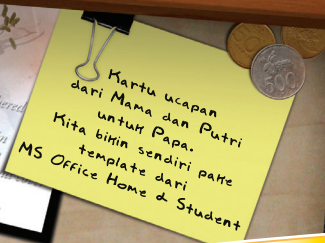 Kartu ucapan
dari Mama dan Putri
untuk Papa.
Kita bikin sendiri pake
template dari
MS Office Home & Student
500